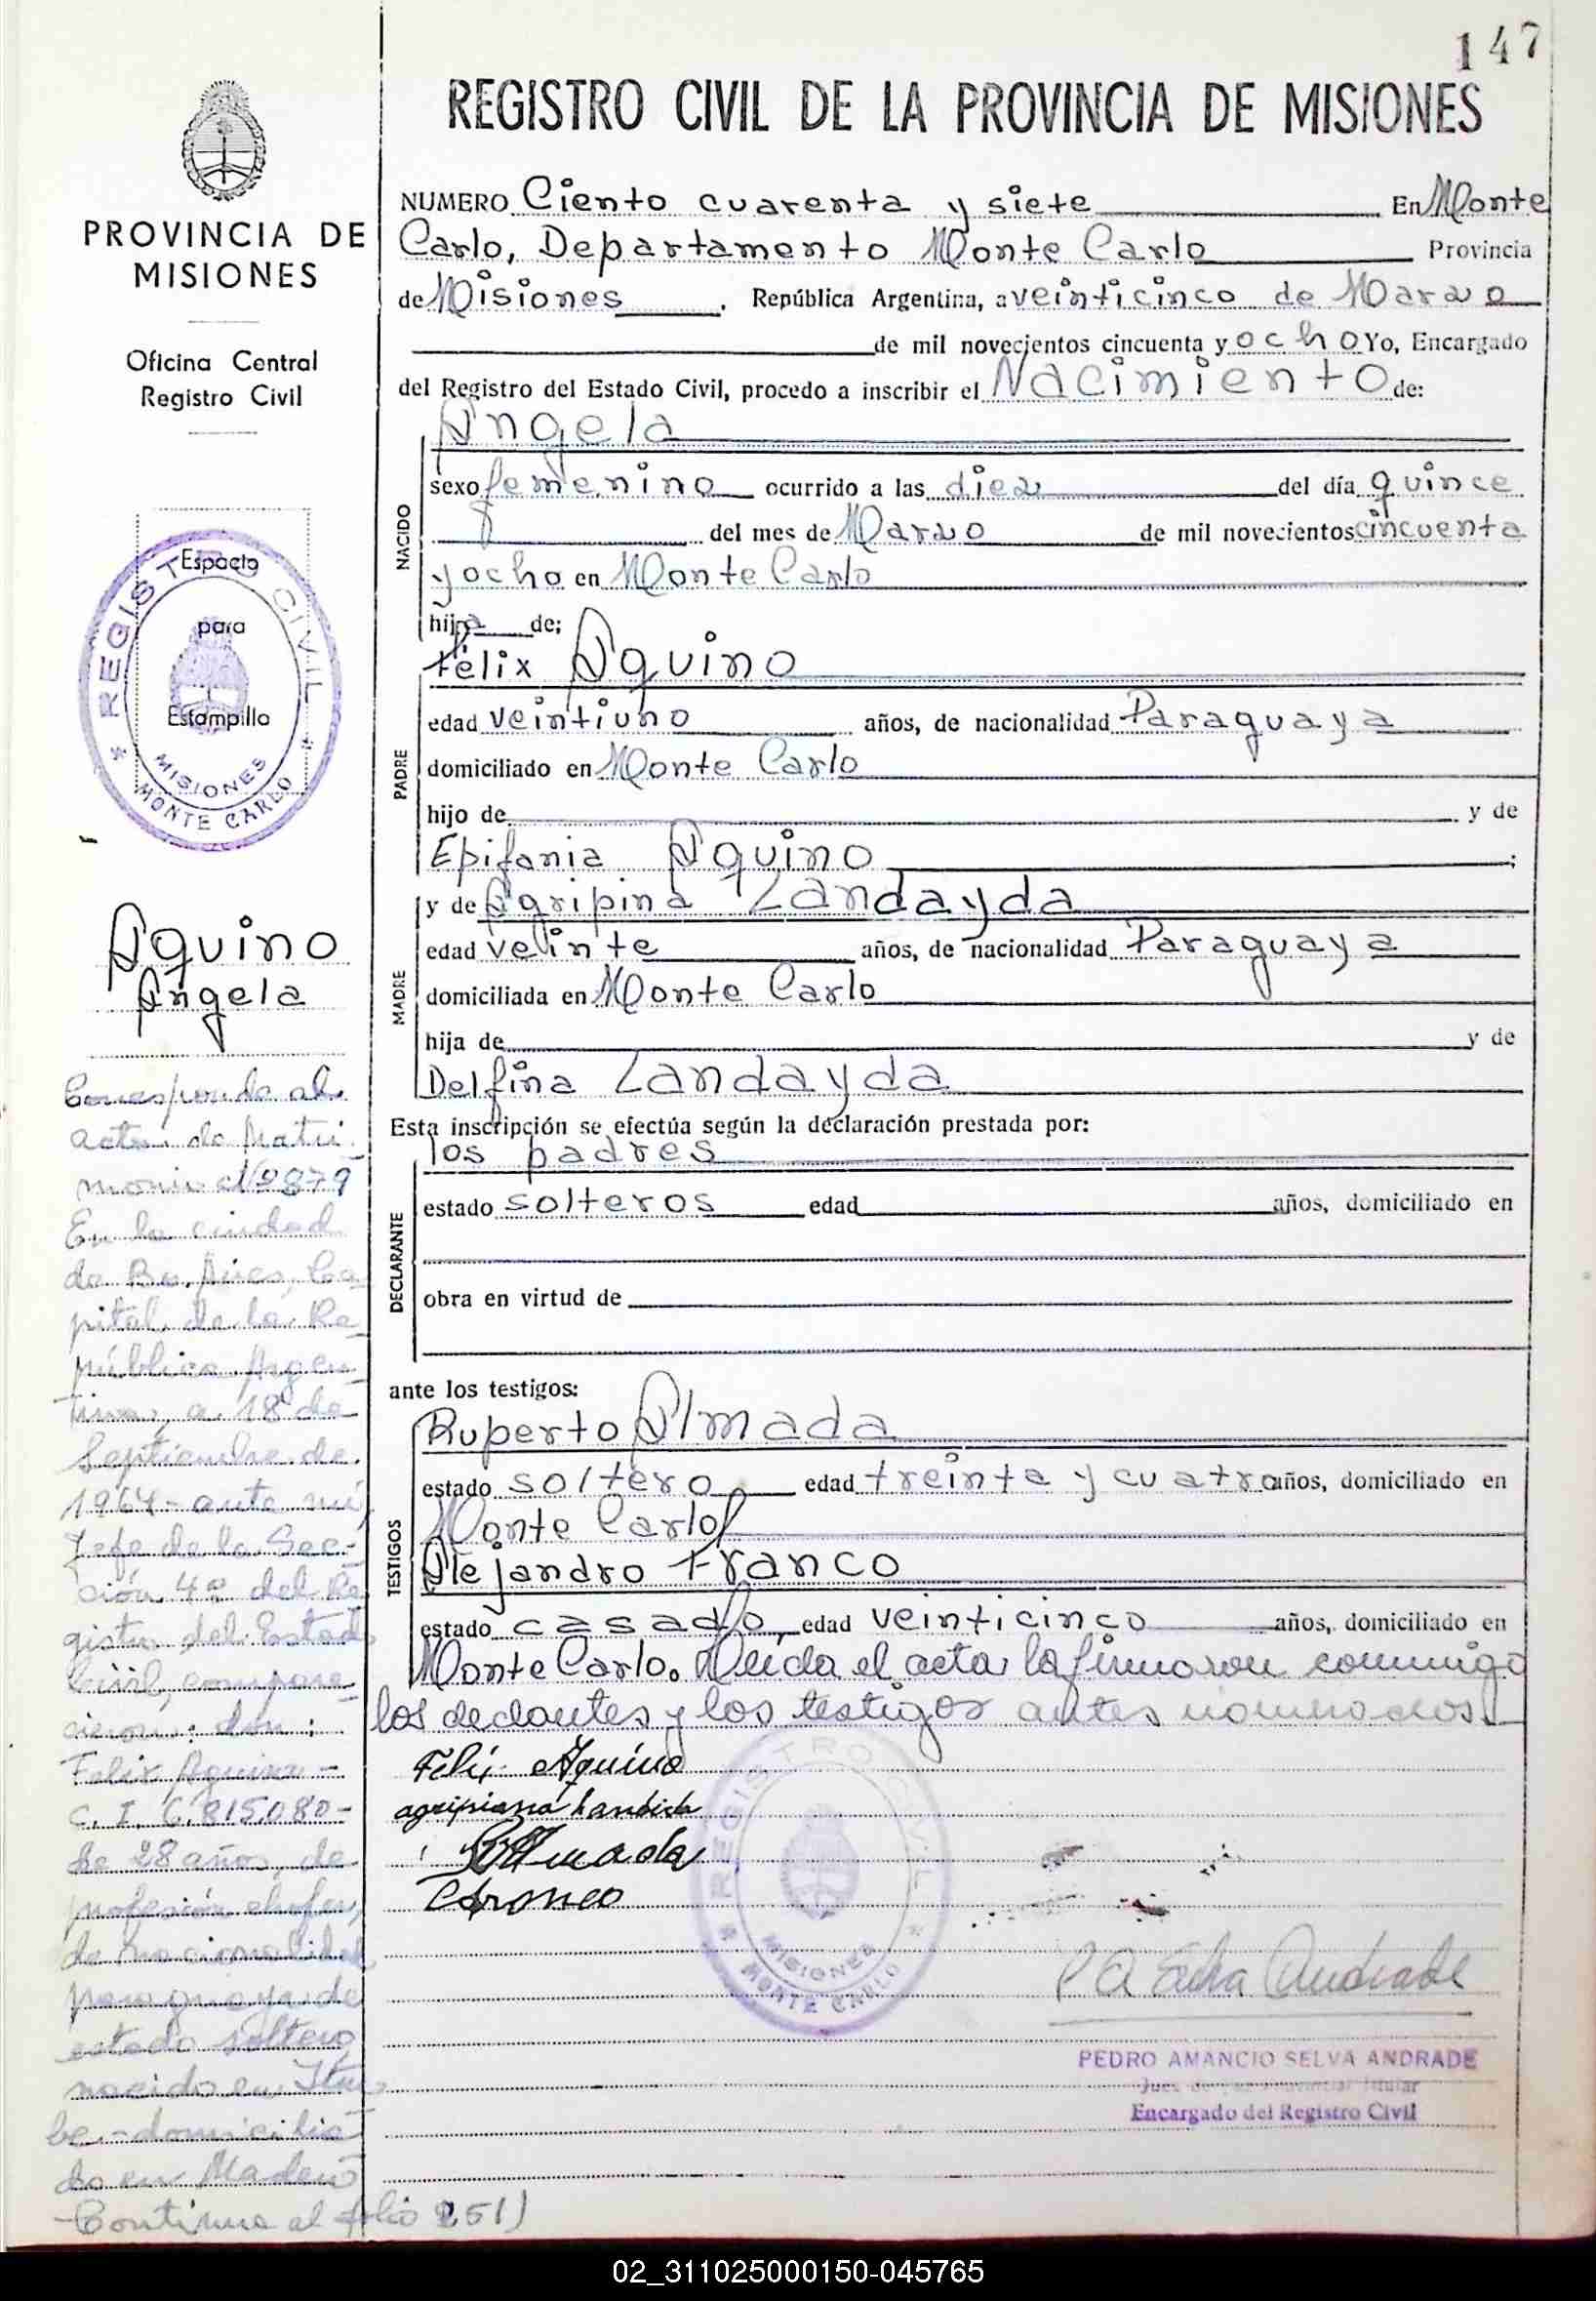 147
REGISTRO CIVIL DE LA PROVINCIA DE MISIONES
PROVINCIA DE
MISIONES
Oficina Central
Registro Civil
NUMERO Ciento cuarenta y siete En Monte
Carlo, Departamento Monte Carlo Provincia
de Misiones, República Argentina, a veinticinco de Marzo
de mil novecientos cincuenta y ocho Yo, Encargado
del Registro del Estado Civil, procedo a inscribir el Nacimiento de:
NACIDO
Angela
sexo femenino ocurrido a las diez del día quince
del mes de Marzo de mil novecientos cincuenta
y ocho en Monte Carlo
hija de;
PADRE
Félix Aquino
edad veintiuno años, de nacionalidad Paraguaya
domiciliado en Monte Carlo
hijo de y de
Epifania Aquino;
MADRE
y de Agripina Landayda
edad veinte años, de nacionalidad Paraguaya
domiciliada en Monte Carlo
hija de y de
Delfina Landayda
Esta inscripción se efectúa según la declaración prestada por:
DECLARANTE
los padres
estado solteros edad años, domiciliado en
obra en virtud de
ante los testigos:
TESTIGOS
Ruperto Almada
estado soltero edad treinta y cuatro años, domiciliado en
Monte Carlo
Alejandro Franco
estado casado, edad veinticinco años, domiciliado en
Monte Carlo. Leida el acta la firmaron conmigo
los declantes y los testigos antes nombrados.
Feli Aquino
agripiana
RAlmada
Franco
PEDRO AMANCIO SELVA ANDRADE
Juez de Paz Provincial Titular
Encargado del Registro Civil
REGISTRO CIVIL
MISIONES
MONTE CARLO
Espacio
para
Estampilla
REGISTRO CIVIL
MISIONES
MONTE CARLO
Aquino
Angela
Corresponde al
acta de Matri
monio Nº 879
En la ciudad
de Bs. Aires, Ca
pital de la Re
pública Argen
tina, a 18 de
Septiembre de
1964 - ante mi,
Jefe de la Sec-
ción 4ª del Re
gistro del Estado
Civil, compare-
cieron: don:
Felix Aquino -
C. I. 6.815.080 -
de 28 años, de
profesión chofer,
de nacionalidad
paraguaya, de
estado soltero,
nacido en Itu
be - domicilia
do en Madero
- Continua al folio 251)
02_311025000150-045765